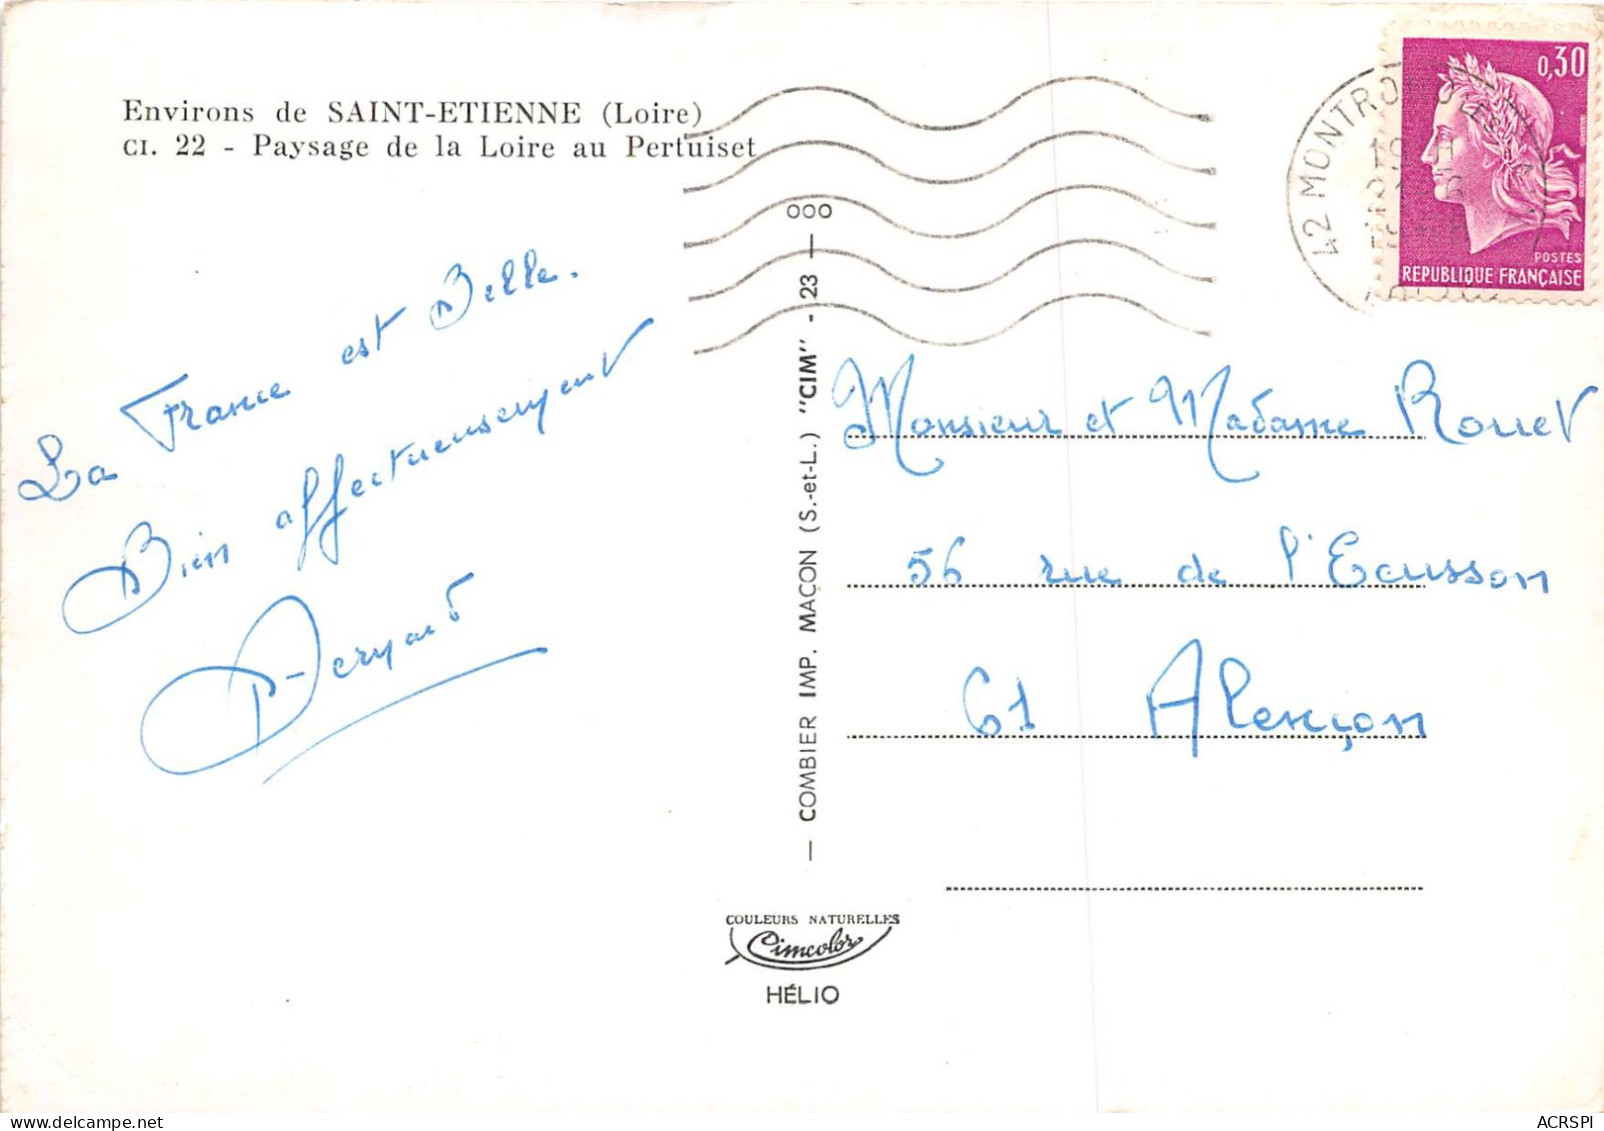 Environs de SAINT-ETIENNE (Loire)
CI. 22 - Paysage de la Loire au Pertuiset
La France est Belle.
Bien affectueusement
Bernard
— COMBIER IMP. MACON (S.-et-L.) "CIM" - 23 — 000
COULEURS NATURELLES
Cimcolor
HÉLIO
0,30
POSTES
REPUBLIQUE FRANÇAISE
42 MONTRO
Monsieur et Madame Rouet
56 rue de l'Ecusson
61 Alençon
ACRSPI